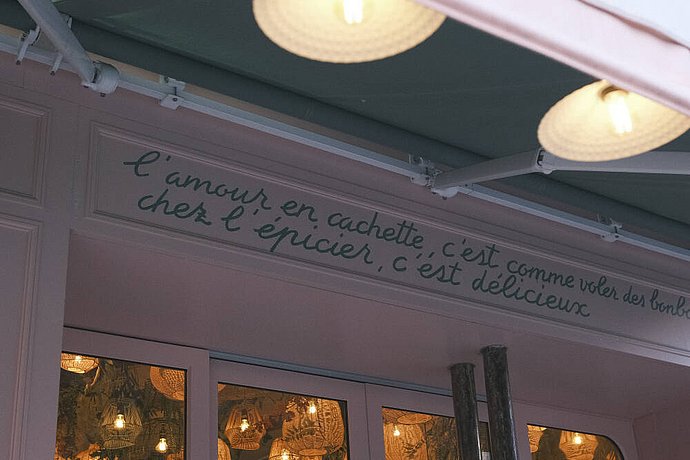 l'amour en cachette, c'est comme voler des bonbo
chez l'épicier, c'est délicieux